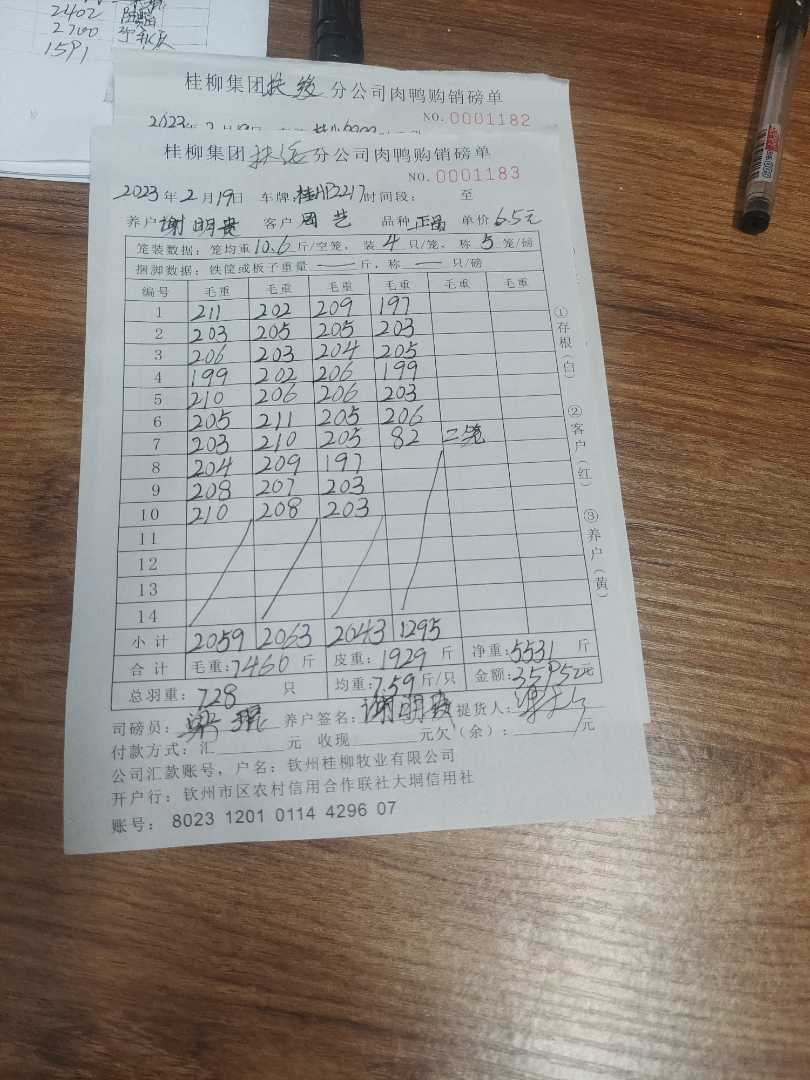 2402
2700
1591
桂柳集团扶绥分公司肉鸭购销磅单
NO. 0001182
2023年2月19日
桂柳集团扶绥分公司肉鸭购销磅单
NO. 0001183
2023年2月19日 车牌: 时间段: 至
养户谢明贵 客户周艺 品种 单价6.5元
笼装数据: 笼均重10.6斤/空笼, 装4只/笼, 称5笼/磅
捆脚数据: 铁筐或板子重量——斤, 称—只/磅
编号 毛重 毛重 毛重 毛重 毛重 毛重
1 211 202 209 197
2 203 205 205 203
3 206 203 204 205
4 199 202 206 199
5 210 206 206 203
6 205 211 205 206
7 203 210 205 82 二笼
8 204 209 197
9 208 207 203
10 210 208 203
11
12
13
14
小计 2059 2063 2043 1295
合计 毛重:7460斤 皮重:1929斤 净重:5531斤
总羽重:728只 均重:7.59斤/只 金额:35952元
司磅员: 养户签名:谢明贵 提货人:
付款方式: 汇 元 收现 元欠(余): 元
公司汇款账号, 户名: 钦州桂柳牧业有限公司
开户行: 钦州市区农村信用合作联社大垌信用社
账号: 8023 1201 0114 4296 07
①存根(白)
②客户(红)
③养户(黄)